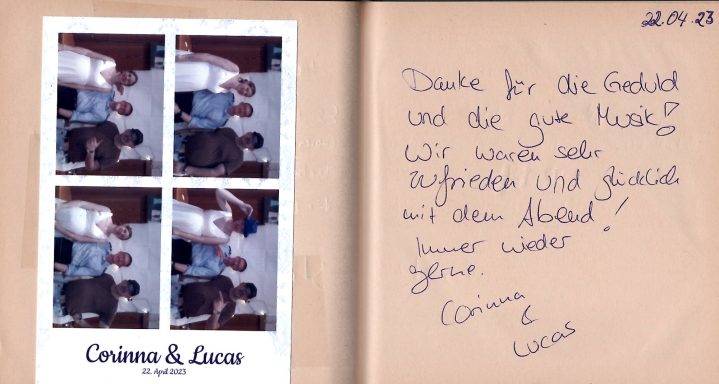 Corinna & Lucas
22. April 2023
22.04.23
Danke für die Geduld
und die gute Musik!
Wir waren sehr
zufrieden und glücklich
mit dem Abend!
Immer wieder
gerne.
Corinna
&
Lucas